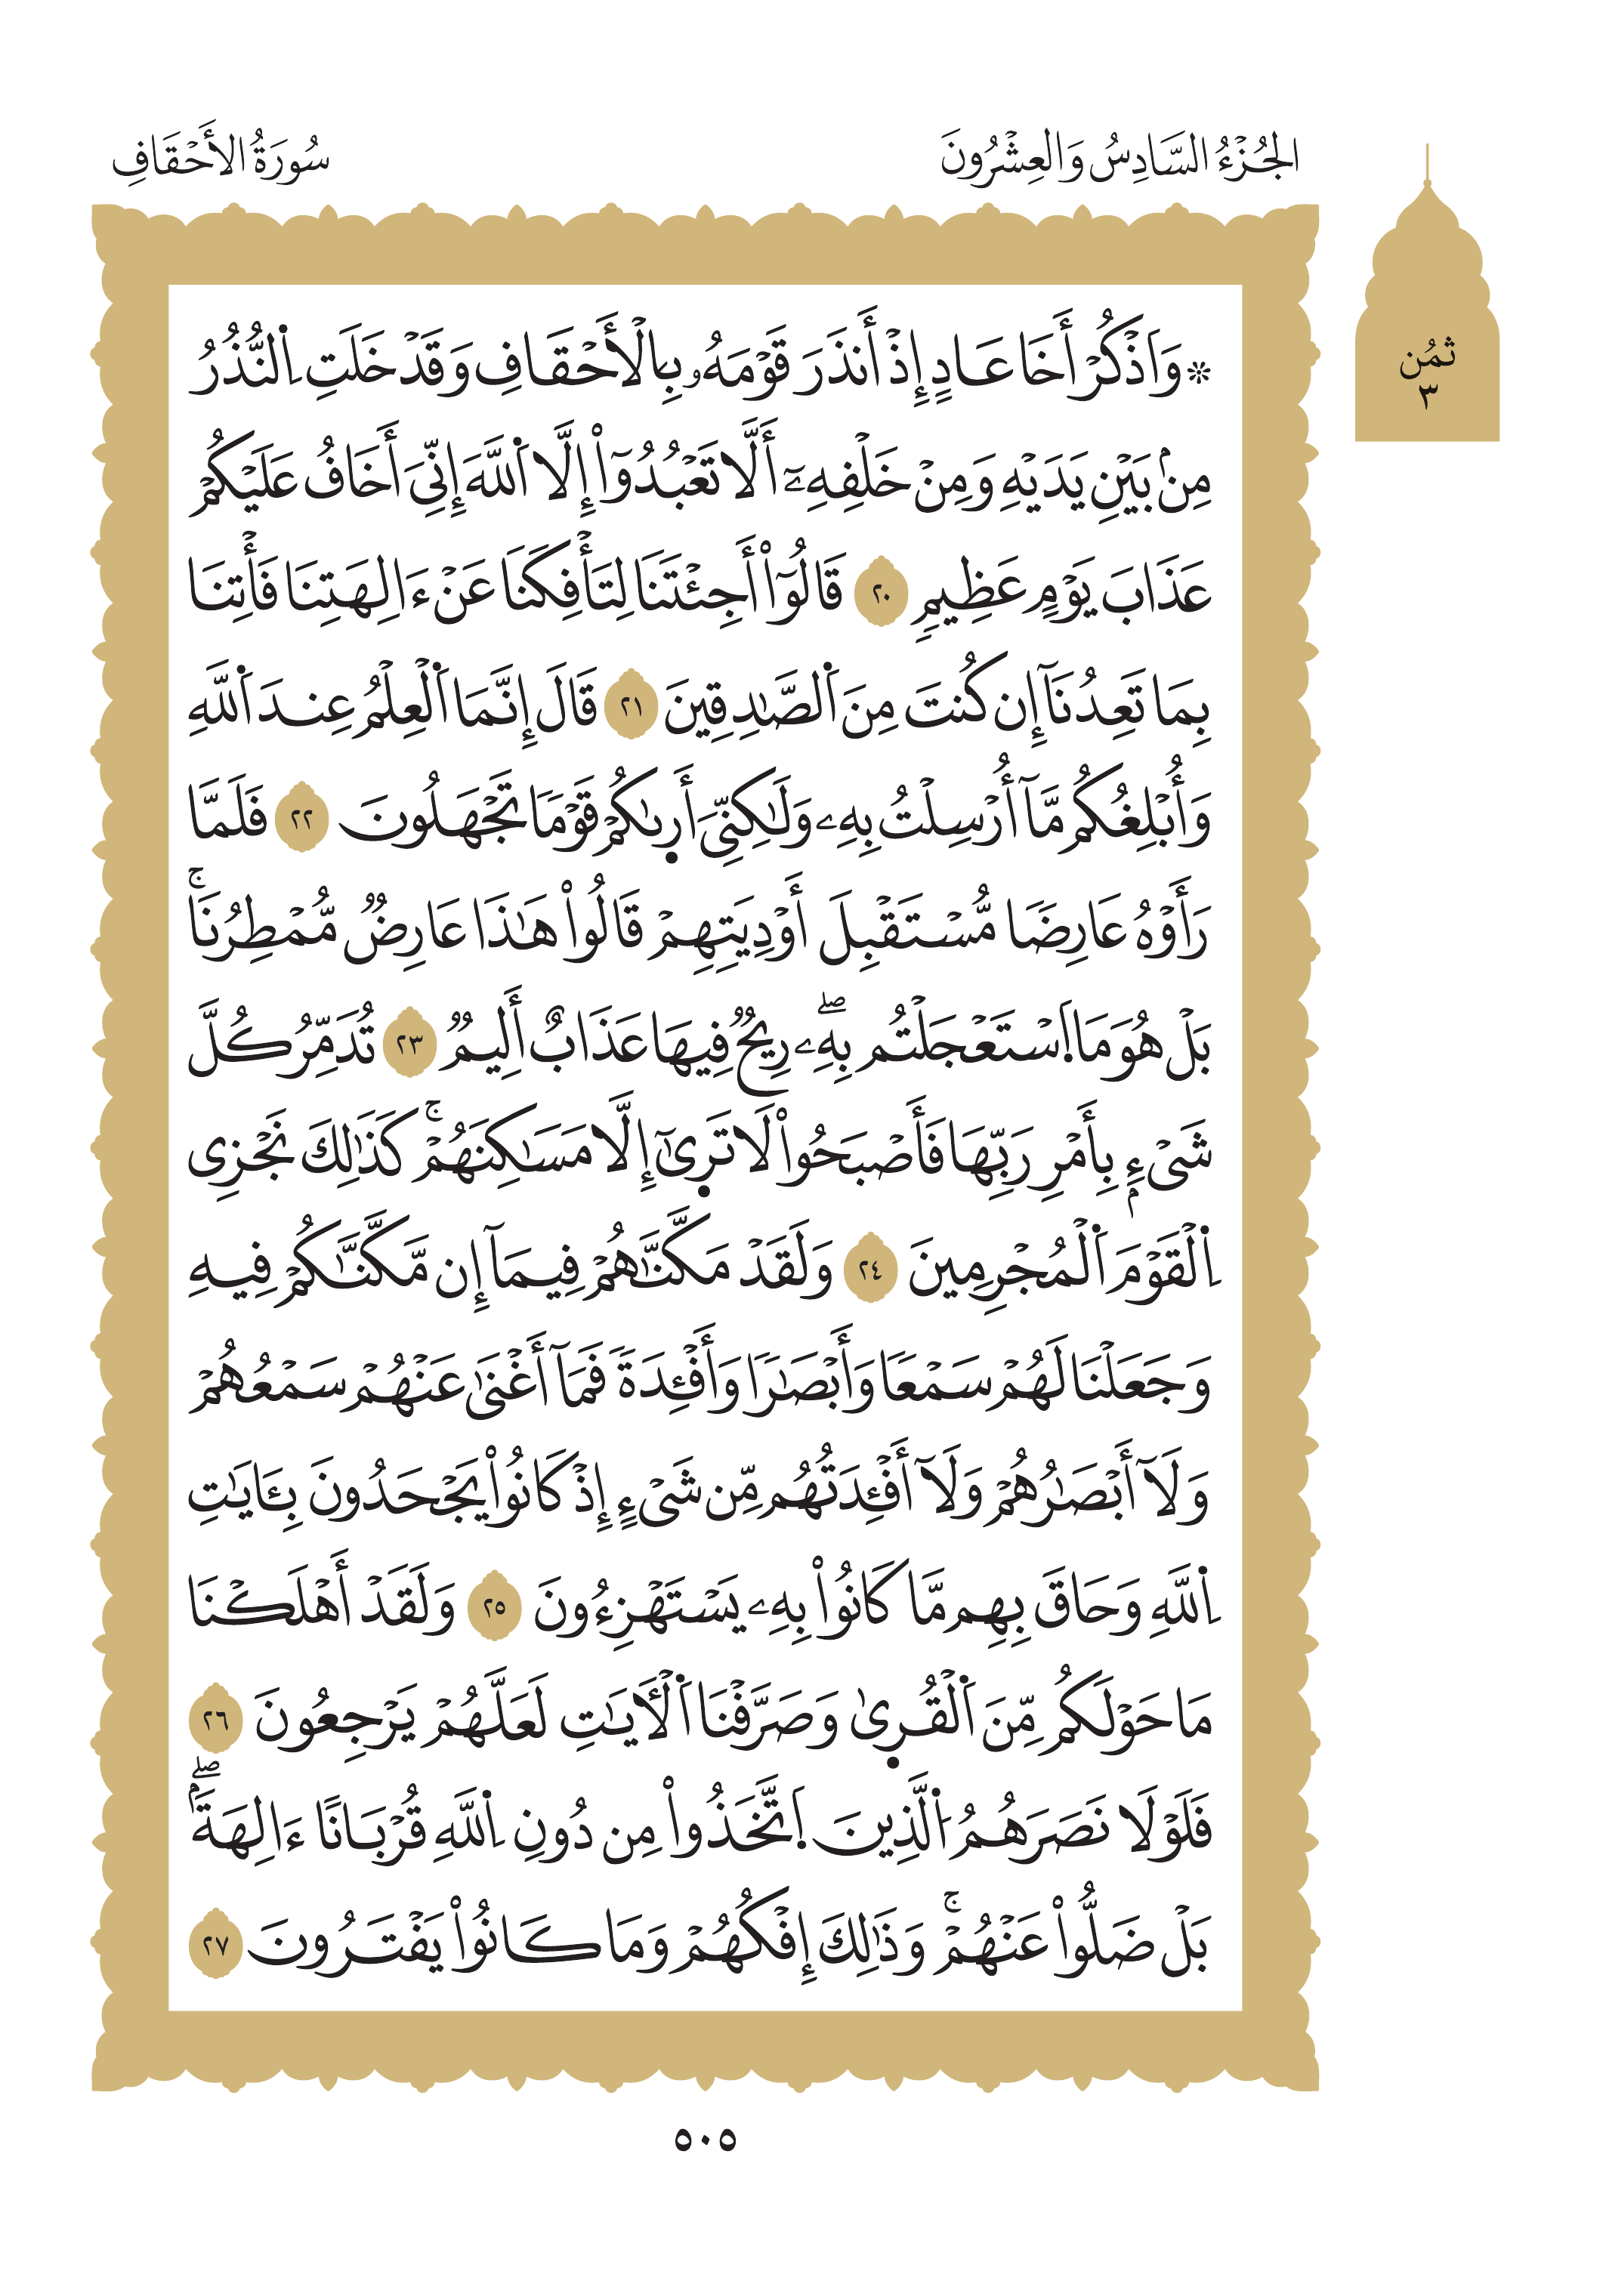 الجُزْءُ السَّادِسُ وَالعِشْرُونَ
سُورَةُ الأَحْقَافِ
ثُمُن
٣
۞ وَاَذْكُرْ أَخَا عَادٍ إِذْ أَنذَرَ قَوْمَهُۥ بِالْأَحْقَافِ وَقَدْ خَلَتِ اِ۬لنُّذُرُ
مِنۢ بَيْنِ يَدَيْهِ وَمِنْ خَلْفِهِۦٓ أَلَّا تَعْبُدُوٓاْ إِلَّا اَ۬للَّهَ إِنِّيَ أَخَافُ عَلَيْكُمْ
عَذَابَ يَوْمٍ عَظِيمٖ ٢٠ قَالُوٓاْ أَجِئْتَنَا لِتَأْفِكَنَا عَنْ ءَالِهَتِنَا فَأْتِنَا
بِمَا تَعِدُنَآ إِن كُنتَ مِنَ اَ۬لصَّٰدِقِينَ ٢١ قَالَ إِنَّمَا اَ۬لْعِلْمُ عِندَ اَ۬للَّهِ
وَأُبْلِغُكُم مَّآ أُرْسِلْتُ بِهِۦ وَلَٰكِنِّيَ أَر۪ىٰكُمْ قَوْمٗا تَجْهَلُونَ ٢٢ فَلَمَّا
رَأَوْهُ عَارِضٗا مُّسْتَقْبِلَ أَوْدِيَتِهِمْ قَالُواْ هَٰذَا عَارِضٞ مُّمْطِرُنَاۚ
بَلْ هُوَ مَا اَ۪سْتَعْجَلْتُم بِهِۦۖ رِيحٞ فِيهَا عَذَابٌ أَلِيمٞ ٢٣ تُدَمِّرُ كُلَّ
شَيْءِۢ بِأَمْرِ رَبِّهَا فَأَصْبَحُواْ لَا تَر۪ىٰٓ إِلَّا مَسَٰكِنَهُمْۚ كَذَٰلِكَ نَجْزِي
اِ۬لْقَوْمَ اَ۬لْمُجْرِمِينَ ٢٤ وَلَقَدْ مَكَّنَّٰهُمْ فِيمَآ إِن مَّكَّنَّٰكُمْ فِيهِ
وَجَعَلْنَا لَهُمْ سَمْعٗا وَأَبْصَٰرٗا وَأَفْـِٔدَةٗ فَمَآ أَغْنَىٰ عَنْهُمْ سَمْعُهُمْ
وَلَآ أَبْصَٰرُهُمْ وَلَآ أَفْـِٔدَتُهُم مِّن شَيْءٍ إِذْ كَانُواْ يَجْحَدُونَ بِـَٔايَٰتِ
اِ۬للَّهِ وَحَاقَ بِهِم مَّا كَانُواْ بِهِۦ يَسْتَهْزِءُونَ ٢٥ وَلَقَدْ أَهْلَكْنَا
مَا حَوْلَكُم مِّنَ اَ۬لْقُر۪ىٰ وَصَرَّفْنَا اَ۬لْأٓيَٰتِ لَعَلَّهُمْ يَرْجِعُونَ ٢٦
فَلَوْلَا نَصَرَهُمُ اُ۬لَّذِينَ اَ۪تَّخَذُواْ مِن دُونِ اِ۬للَّهِ قُرْبَانًا ءَالِهَةَۢۖ
بَلْ ضَلُّواْ عَنْهُمْۚ وَذَٰلِكَ إِفْكُهُمْ وَمَا كَانُواْ يَفْتَرُونَ ٢٧
٥٠٥